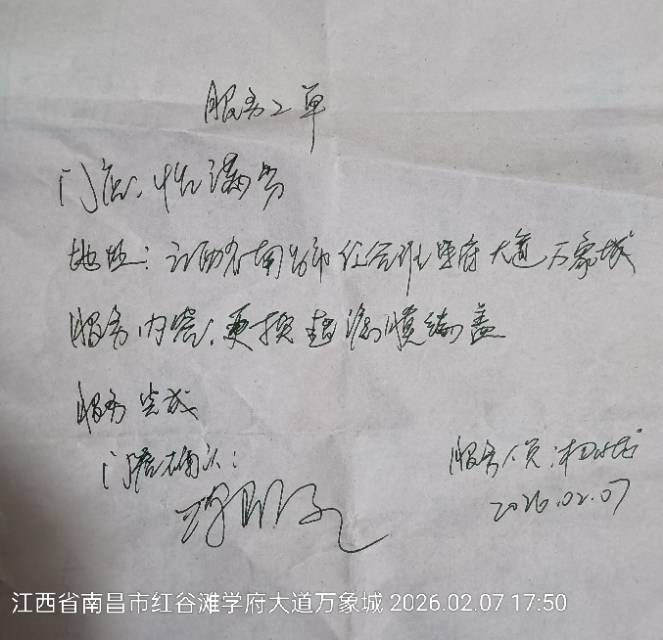 服务工单
门店：怡满分
地址：江西省南昌市红谷滩学府大道万象城
服务内容：更换超滤膜端盖
服务完成
门店确认：
服务人员：
2026.02.07
江西省南昌市红谷滩学府大道万象城 2026.02.07 17:50